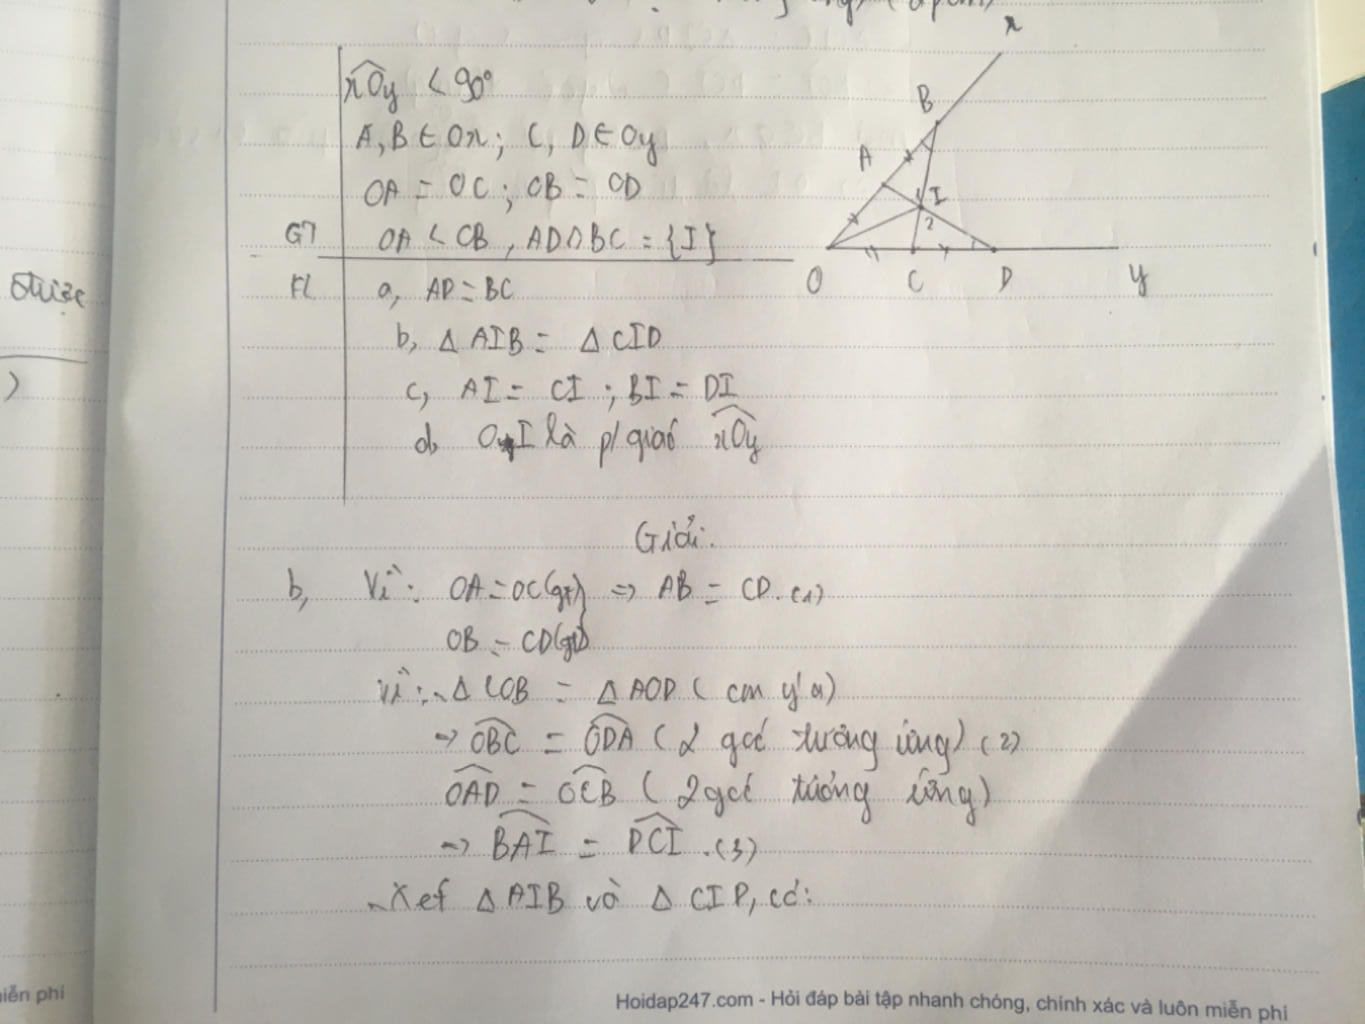 x
xOy < 90°
A, B ∈ Ox; C, D ∈ Oy
OA = OC; OB = OD
GT OA < OB, AD∩BC = {I}
KL a, AD = BC
b, Δ AIB = Δ CID
c, AI = CI ; BI = DI
d, OI là p/giác xOy
B
A
I
2
O C D y
được
)
Giải:
b, Vì: OA = OC(gt) => AB = CD. (1)
OB = OD(gt)
Vì: Δ COB = Δ AOD ( cm ý a)
-> OBC = ODA ( 2 góc tương ứng) (2)
OAD = OCB ( 2 góc tương ứng)
-> BAI = DCI .(3)
Xét Δ AIB và Δ CID, có:
iễn phí
Hoidap247.com - Hỏi đáp bài tập nhanh chóng, chính xác và luôn miễn phí